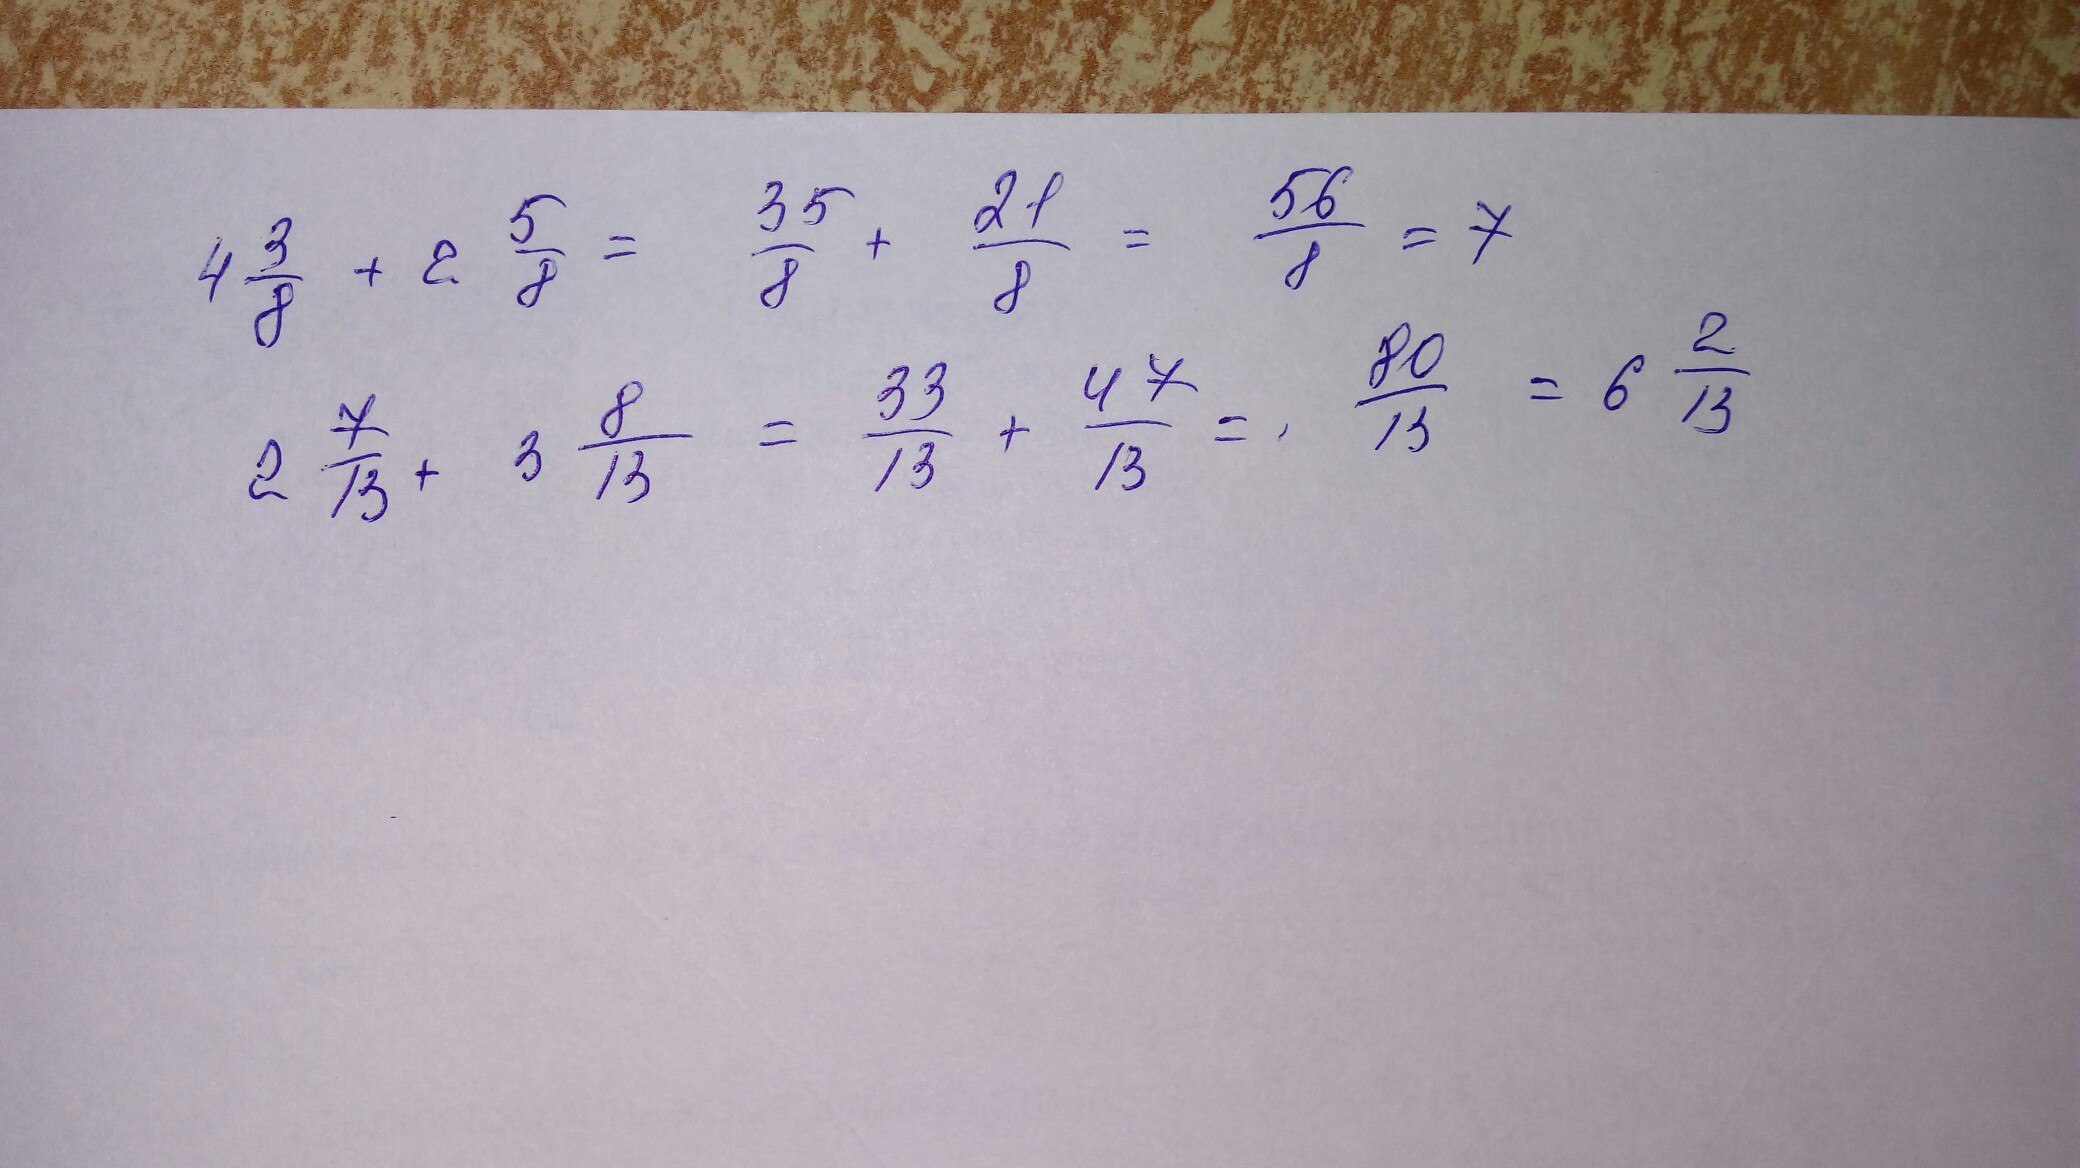 4 3/8 + 2 5/8 = 35/8 + 21/8 = 56/8 = 7
2 7/13 + 3 8/13 = 33/13 + 47/13 = 80/13 = 6 2/13